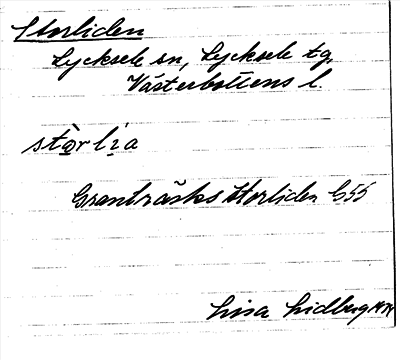 Storliden
Lycksele sn, Lycksele tg,
Västerbottens l.
stòrlìa
Granträsks Storliden G55
Lisa Lidberg